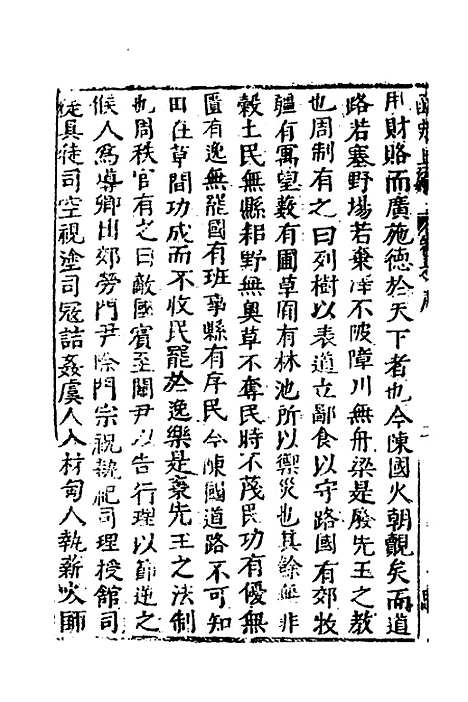 用財賄而廣施德於天下者也今陳國火朝覿矣而道
路若塞野場若棄澤不陂障川無舟梁是廢先王之教
也周制有之曰列樹以表道立鄙食以守路國有郊牧
疆有寓望藪有圃草囿有林池所以禦災也其餘無非
穀土民無縣耜野無奧草不奪民時不蔑民功有優無
匱有逸無罷國有班事縣有序民今陳國道路不可知
田在草間功成而不收民罷於逸樂是棄先王之法制
也周秩官有之曰敵國賓至關尹以告行理以節逆之
候人為導卿出郊勞門尹除門宗祝執祀司理授館司
徒具徒司空視塗司寇詰姦虞人入材甸人執薪火師